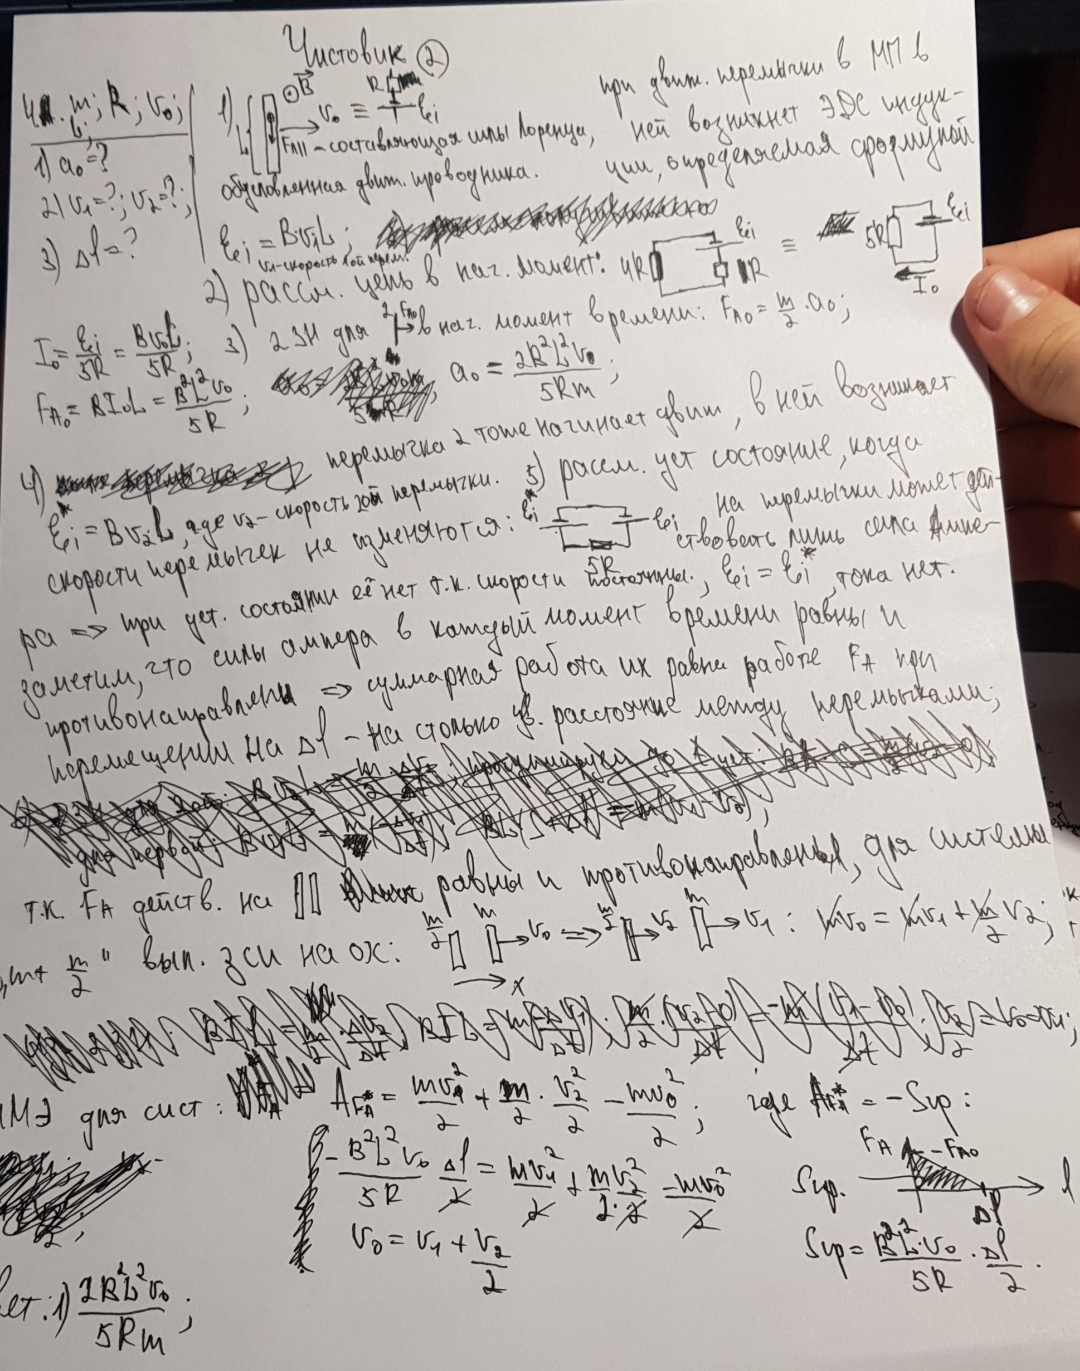 Чистовик ②
4. m; R; v₀; L;
1) a₀=?
2) v₁=?; v₂=?;
3) Δl=?
1) L ⊙B⃗ v₀ ≡ R Ɛi при движ. перемычки в МП в
FЛ|| - составляющая силы Лоренца, ней возникнет ЭДС индук-
обусловленная движ. проводника. ции, определяемая формулой
Ɛi = Bv₁L;
v₁-скорость 1ой перем.
2) рассм. цепь в нач. момент: 4R Ɛi R ≡ 5R Ɛi I₀
I₀ = Ɛi/5R = Bv₀L/5R; 3) 2ЗН для 2 FA₀ в нач. момент времени: FA₀ = m/2 · a₀;
FA₀ = BI₀L = B²L²v₀/5R; a₀ = 2B²L²v₀/5Rm;
4) перемычка 2 тоже начинает движ, в ней возникает
Ɛi* = Bv₂L, где v₂-скорость 2ой перемычки. 5) рассм. уст состояние, когда
скорости перемычек не изменяются: Ɛi* Ɛi 5R на перемычки может дей-
ствовать лишь сила Ампе-
ра => при уст. состоянии её нет т.к. скорости постоянны., Ɛi = Ɛi*, тока нет.
заметим, что силы ампера в каждый момент времени равны и
противонаправлены => суммарная работа их равна работе FA при
перемещении на Δl - на столько ув. расстояние между перемычками;
т.к. FA действ. на равны и противонаправлены, для системы
"m+ m/2" вып. ЗСИ на ox: m/2 m v₀ => m/2 v₂ m v₁ : mv₀ = mv₁ + m/2 v₂;
x
МЭ для сист: AFA* = mv₁²/2 + m/2 · v₂²/2 - mv₀²/2; где AFA* = -Sгр:
-B²L²v₀/5R Δl/2 = mv₁²/2 + mv₂²/2·2 - mv₀²/2 Sгр. FA FA₀ Δl l
v₀ = v₁ + v₂/2 Sгр = B²L²v₀/5R · Δl/2.
ет: 1) 2B²L²v₀/5Rm;